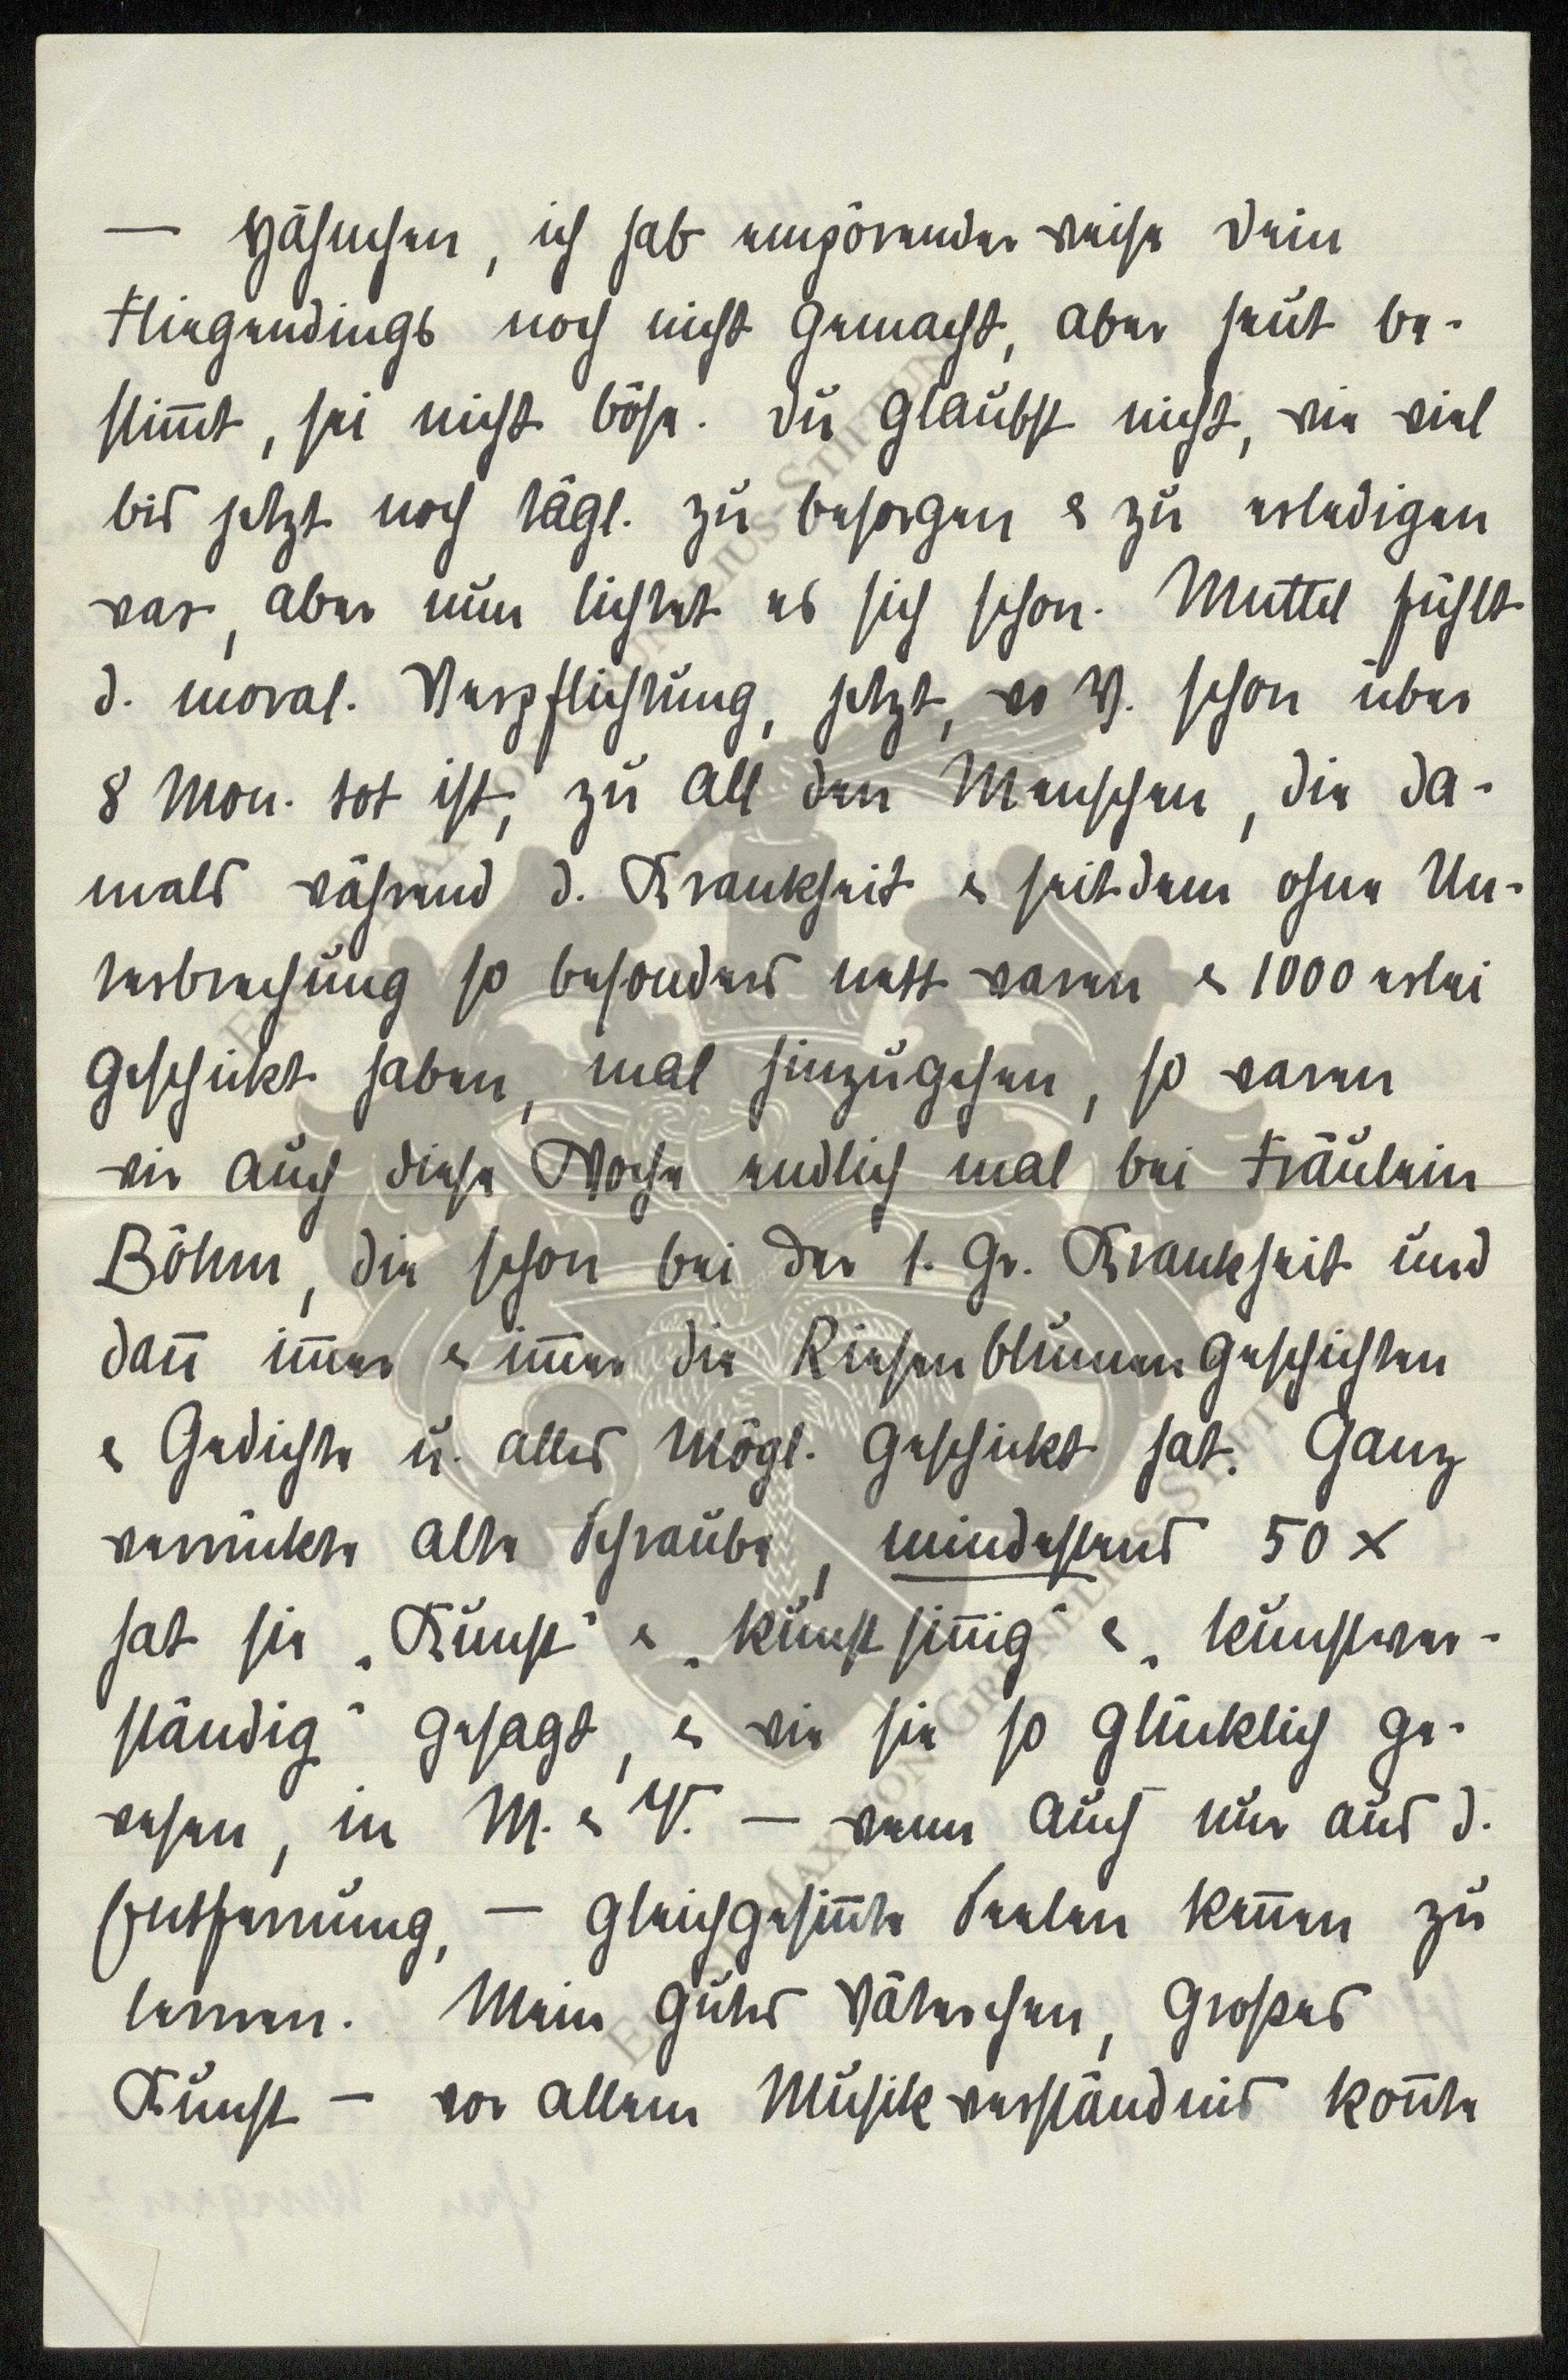 — Hähnchen, ich hab empörender weise Dein
Fliegendings noch nicht gemacht, aber heut be-
stim̄t, sei nicht böse. Du glaubst nicht, wie viel
bis jetzt noch tägl. zu besorgen & zu erledigen
war, aber nun lichtet es sich schon. Muttel fühlt
d. moral. Verpflichtung, jetzt, wo V. schon über
8 Mon. tot ist, zu all den Menschen, die da-
mals während d. Krankheit & seitdem ohne Un-
terbrechung so besonders nett waren & 1000 erlei
geschickt haben, mal hinzugehen, so waren
wir auch diese Woche endlich mal bei Fräulein
Böhm, die schon bei der 1. Gr. Krankheit und
dan̄ im̄er & im̄er die Riesenblumengeschichten
& Gedichte u. alles mögl. geschickt hat. Ganz
verrückte alte Schraube, mindestens 50 x
hat sie „Kunst" & „kunstsin̄ig" & „kunstver-
ständig" gesagt, & wie sie so glücklich ge-
wesen, in M. & V. — wenn auch nur aus d.
Entfernung, — gleichgesin̄te Seelen ken̄en zu
lernen. Mein gutes Väterchen, großes
Kunst — vor allem Musikverständnis kon̄te